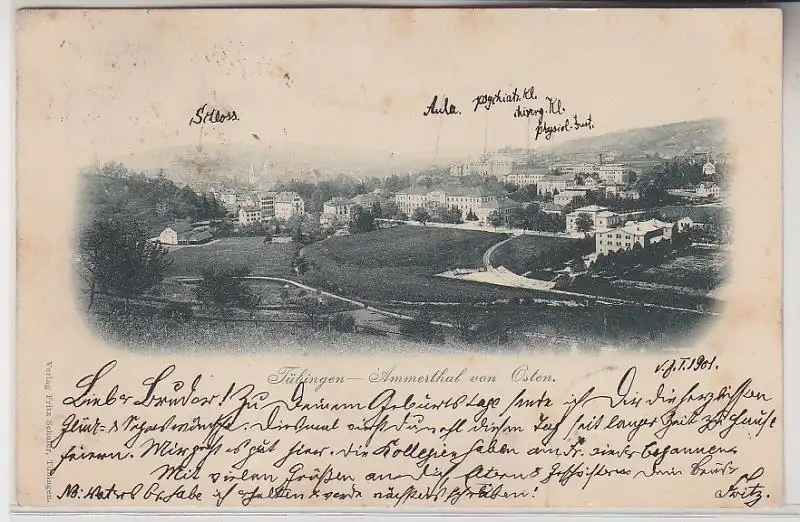 Schloss.
Aula.
psychiatr. Kl.
chirurg. Kl.
physiol. Inst.
Tübingen — Ammerthal von Osten.
Verlag Fritz Schäfer, Tübingen.
1901.
Lieber Bruder! Zu Deinem Geburtstage sende ich Dir die herzlichsten
Glück- & Segenswünsche. Diesmal wirst Du wohl diesen Tag seit langer Zeit zu Hause
feiern. Mir geht es gut hier. Die Kollegien haben am wieder begonnen.
Mit vielen Grüßen an die Eltern & Geschwister Dein Bruder
NB. Vaters habe ich erhalten & werde nächstens schreiben! Fritz.